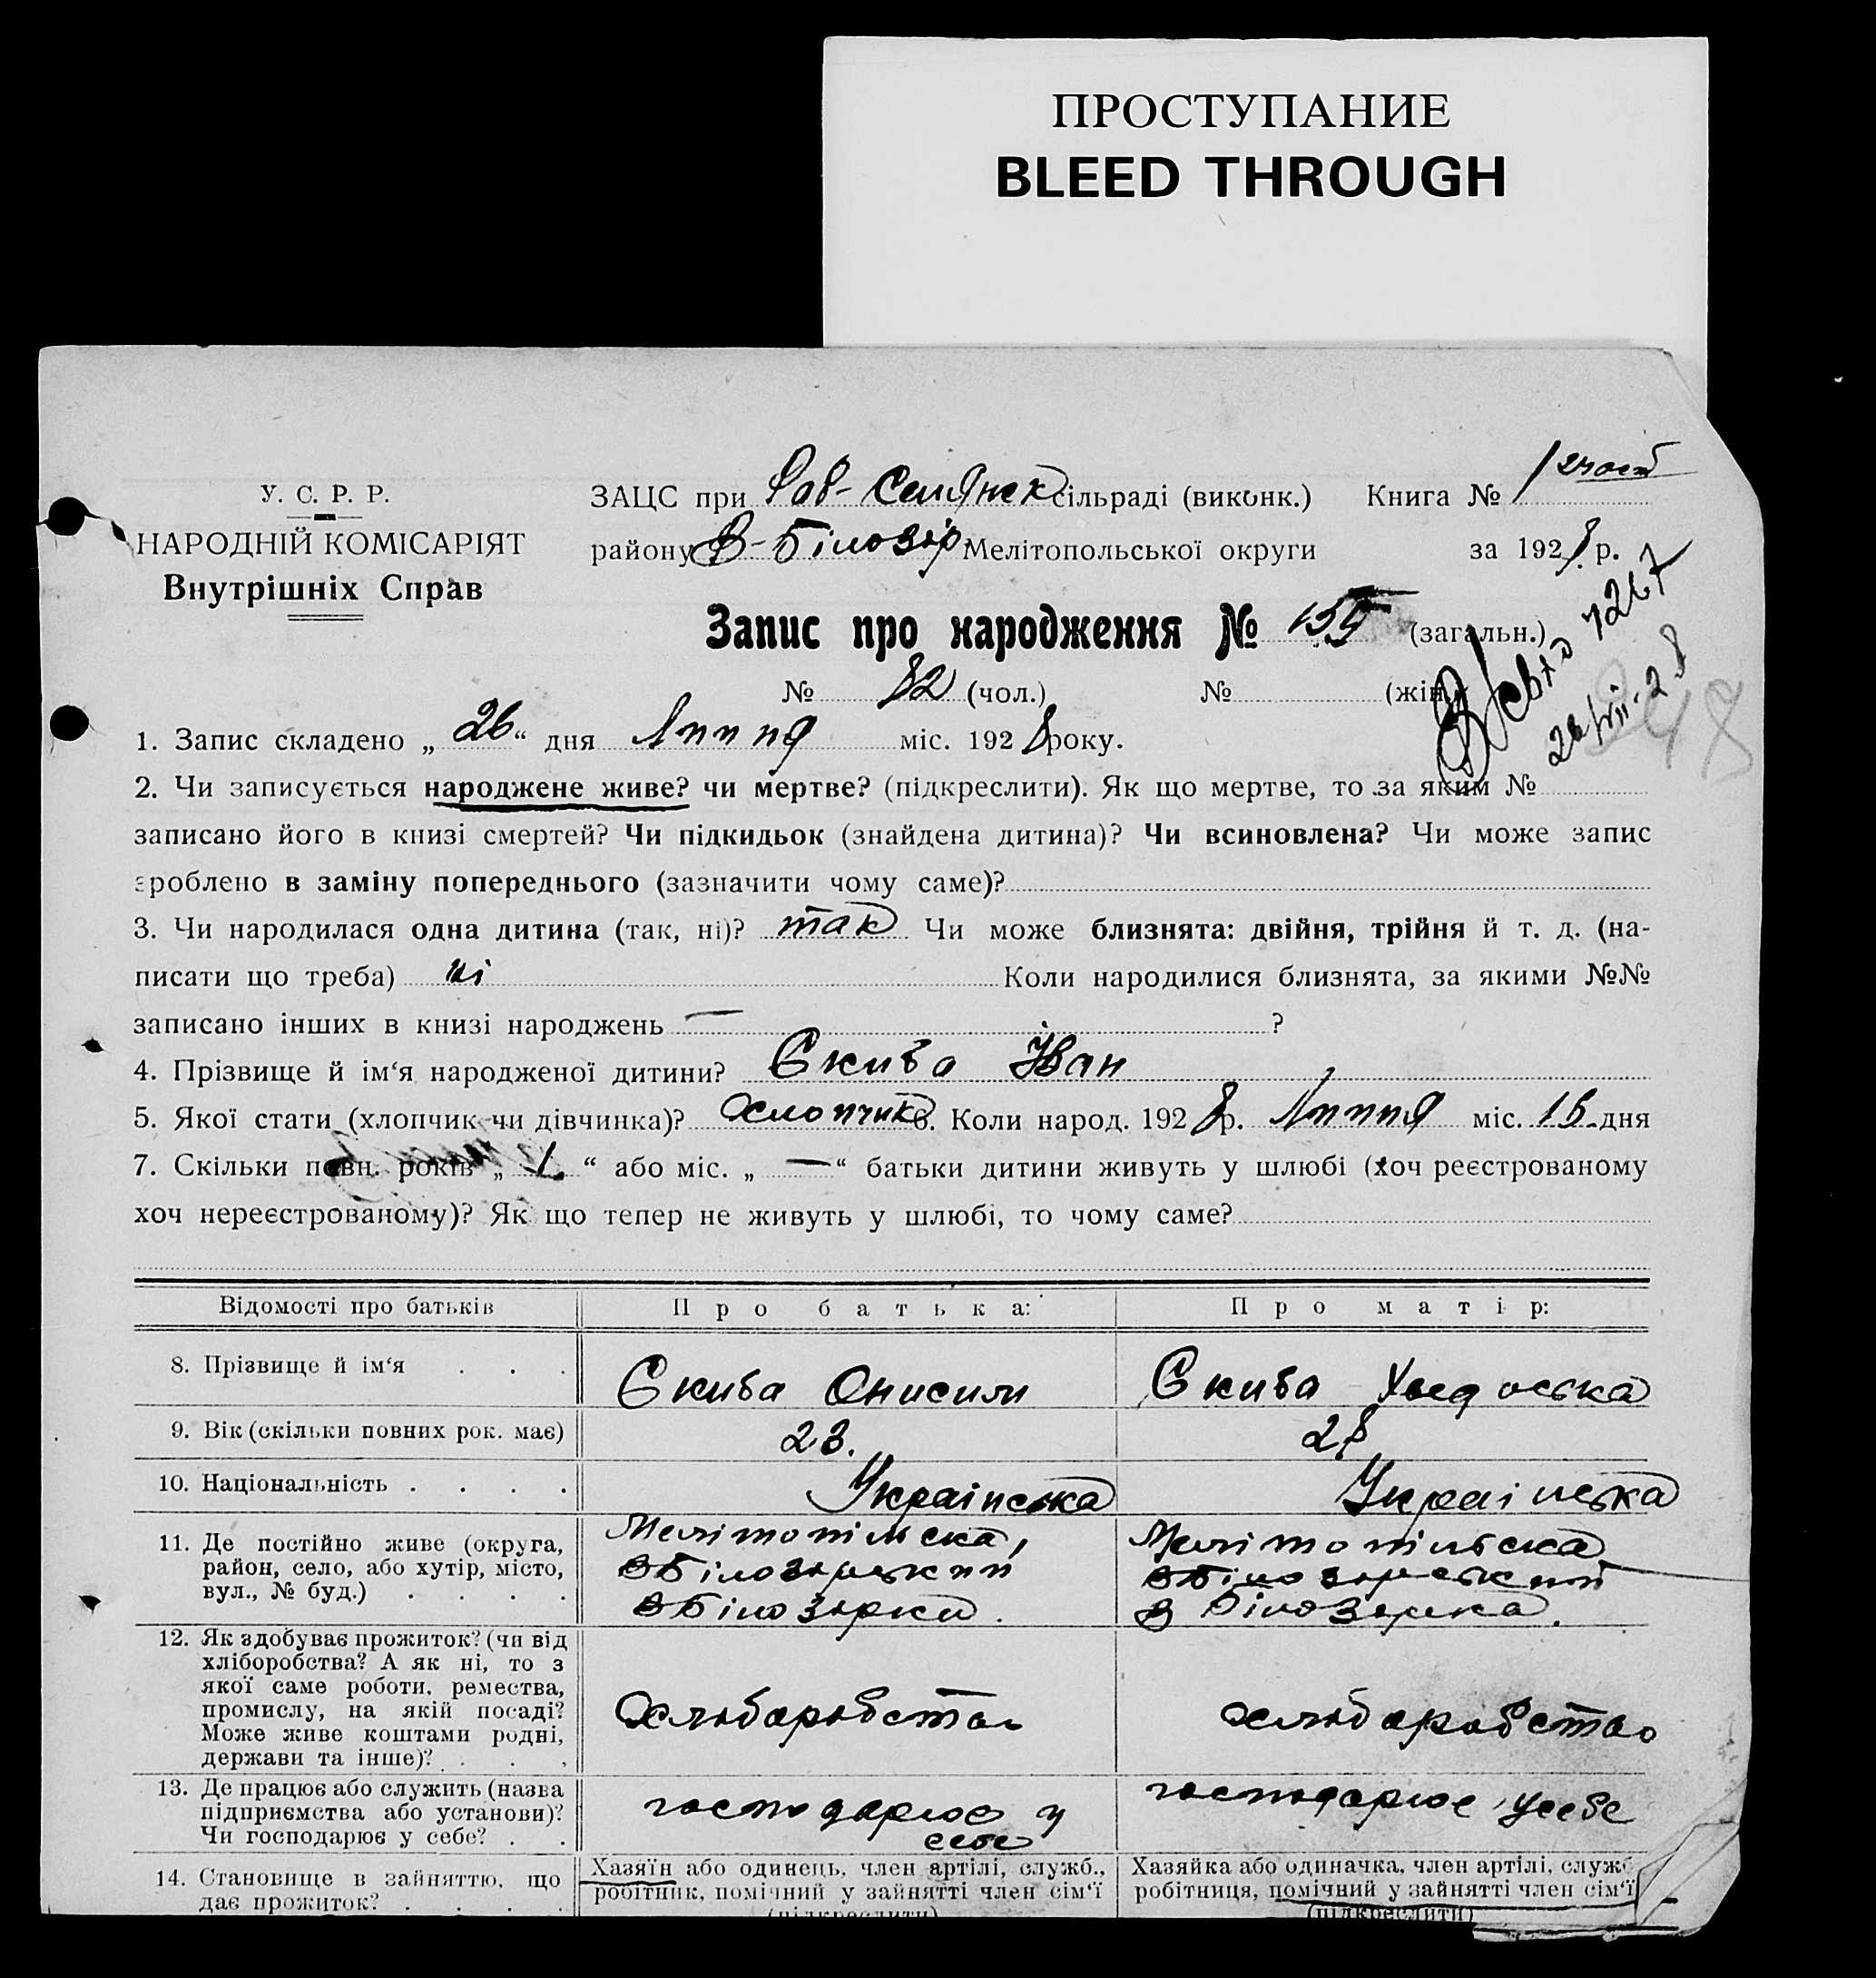 ПРОСТУПАНИЕ
BLEED THROUGH
1 част
У. С. Р. Р.
ЗАЦС при Роб-Селянск сільраді (виконк.) Книга №
НАРОДНІЙ КОМІСАРІЯТ
району В-Білозір Мелітопольської округи за 1928 р.
Внутрішніх Справ
Запис про народження № 155 (загальн.)
№ 82 (чол.) № (жін.)
7267
26/VII-28
248
1. Запис складено „26“ дня Липня міс. 1928 року.
2. Чи записується народжене живе? чи мертве? (підкреслити). Як що мертве, то за яким №
записано його в книзі смертей? Чи підкидьок (знайдена дитина)? Чи всиновлена? Чи може запис
зроблено в заміну попереднього (зазначити чому саме)?
3. Чи народилася одна дитина (так, ні)? так Чи може близнята: двійня, трійня й т. д. (на-
писати що треба) ні Коли народилися близнята, за якими №№
записано інших в книзі народжень — ?
4. Прізвище й ім‘я народженої дитини? Скиба Іван
5. Якої стати (хлопчик чи дівчинка)? Хлопчик 6. Коли народ. 1928 р. Липня міс. 15 дня
7. Скільки повн. років „1“ або міс. „—“ батьки дитини живуть у шлюбі (хоч реєстрованому
хоч нереєстрованому)? Як що тепер не живуть у шлюбі, то чому саме?
Відомості про батьків
Про батька:
Про матір:
8. Прізвище й ім‘я . . .
Скиба Онисим
Скиба Хведоська
9. Вік (скільки повних рок. має)
23.
28
10. Національність . . . .
Українська
Українська
11. Де постійно живе (округа,
район, село, або хутір, місто,
вул., № буд.) . . . .
Мелітопільска,
ВБілозірський
ВБілозірки.
Мелітопільска
ВБілозірський
В Білозірка.
12. Як здобуває прожиток? (чи від
хліборобства? А як ні, то з
якої саме роботи, ремества,
промислу, на якій посаді?
Може живе коштами родні,
держави та інше)? . . .
Хлюборобство
хлюборобство
13. Де працює або служить (назва
підприємства або установи)?
Чи господарює у себе? . .
господарює у
себе
господарює усебе
14. Становище в зайняттю, що
дає прожиток? . . . .
Хазяїн або одинець, член артілі, служб.,
робітник, помічний у зайнятті член сім‘ї
(підкреслити)
Хазяйка або одиначка, член артілі, служб
робітниця, помічний у зайнятті член сім‘ї
(підкреслити)